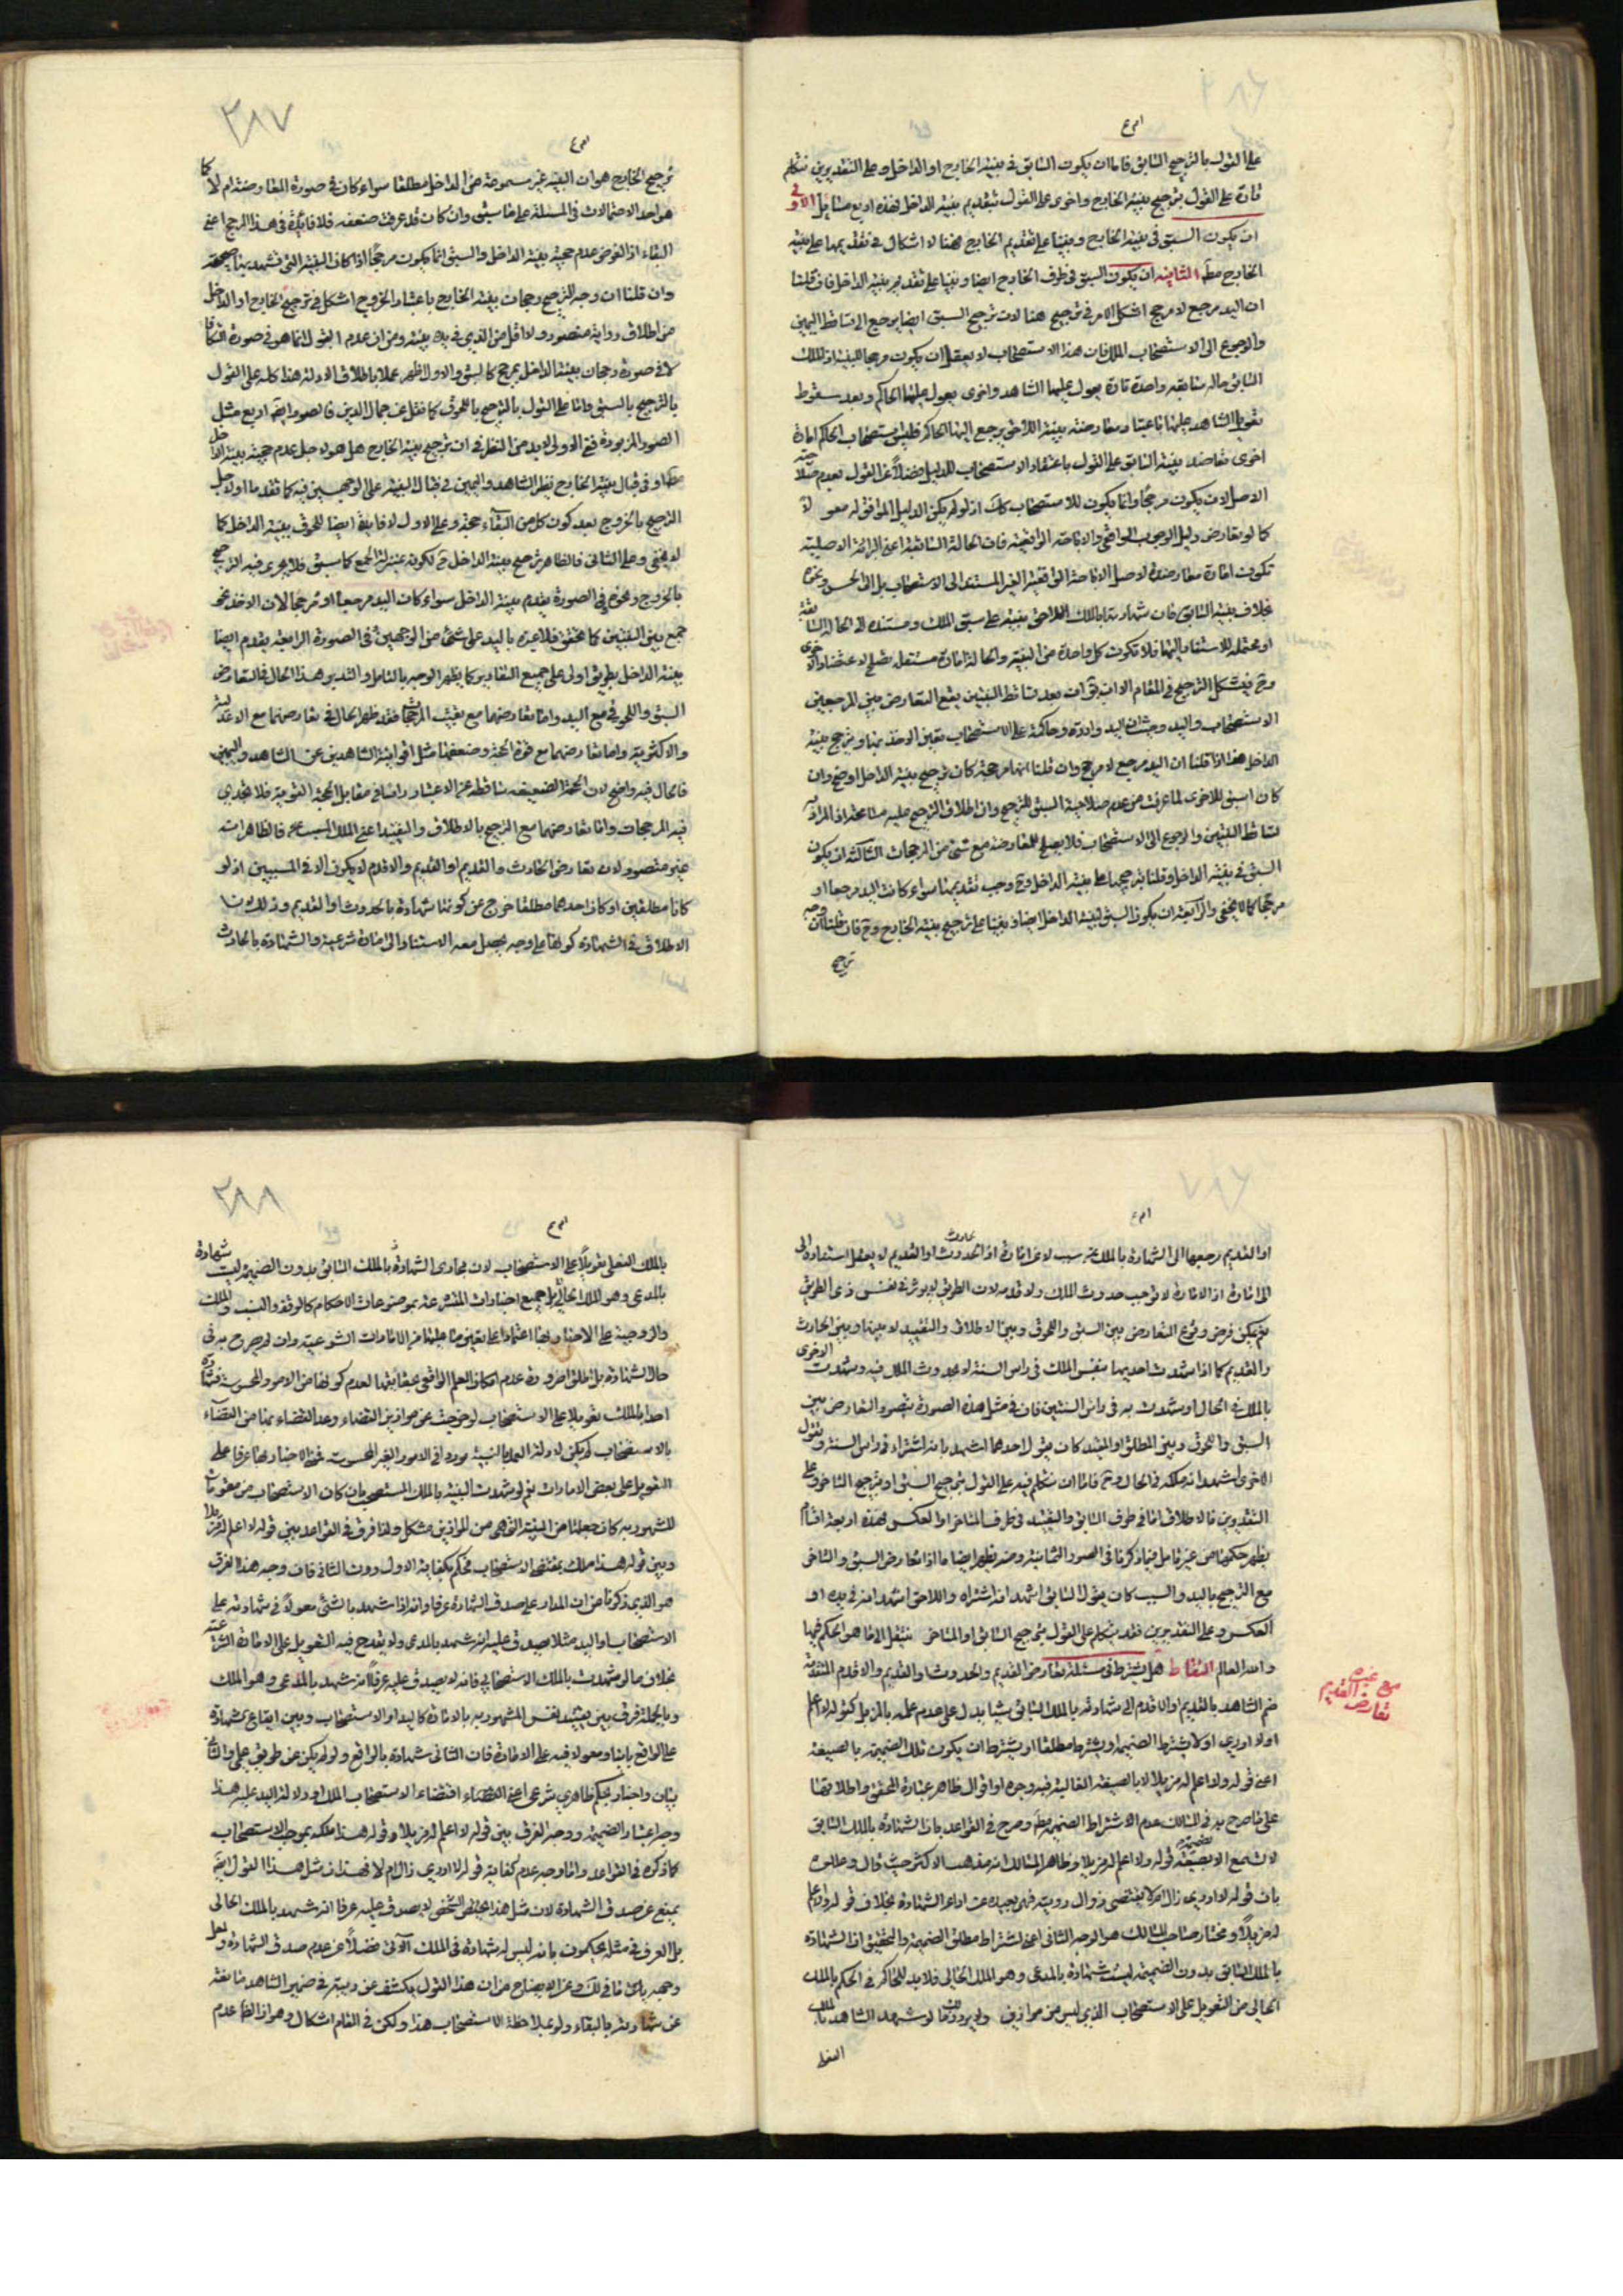 على القول بالترجيح السابق فاما ان يكون السابق في بينة الخارج او الداخل وعلى التقديرين نتكلم
تارة على القول بترجيح بينة الخارج واخرى على القول بتقديم بينة الداخل فهذه اربع مسايل الاولى
ان يكون السبق في بينة الخارج وبنينا على تقديم الخارج فهنا لا اشكال في تقديمها على بينة
الخارج مط الثانية ان يكون السبق في طرف الخارج ايضا وبنينا على تقديم بينة الداخل فان قلنا
ان اليد مرجع لا مرجح اشكل الامر في ترجيح هنا لان ترجيح السبق ايضا يرجع الى تساقط البينتين
والرجوع الى الاستصحاب الملك فان هذا الاستصحاب لا يعقل ان يكون مرجحا للبينة اذ الملك
السابق حاله سابقه واحدة تارة يعول عليها الشاهد واخرى يعول عليها الحاكم وبعد سقوط
تعويل الشاهد عليها باعتبار معارضته ببينة اللاحق يرجع اليها الحاكم فليس استصحاب الحاكم امارة
اخرى تعاضد بينة السابق على القول باعتقاد الاستصحاب للدليل فضلا عن القول بعدم صلاحية
الاصل لان يكون مرجحا وانما يكون للاستصحاب ذلك اذ لو لم يكن الدليل الموافق له معولا
كما لو تعارض دليل الوجوب الواقعي والاباحة الواقعية فان الحالة السابقة اعني البرائة الاصلية
تكون امارة معاضدة لاصل الاباحة الواقعية الغير المستند الى الاستصحاب بل الى الحس ونحوه
بخلاف بينة السابق فان شهادتها بالملك اللاحق مبنية على سبق الملك ومستنده الى الحالة السابقة
او محتمله للاستناد اليها فلا تكون كل واحدة من البينة والحالة امارة مستقله تصلح لاعتضاد الاخرى
وح يشكل الترجيح في المقام الا ان يق ان بعد تساقط البينتين يقع التعارض بين المرجعين
الاستصحاب واليد وحيث ان اليد واردة وحاكمة على الاستصحاب تعين الاخذ بها وترجيح بينة
الداخل هذا اذا قلنا ان اليد مرجع لا مرجح وان قلنا انها مرجحة كان ترجيح بينة الداخل اوضح وان
كان اسبق للاخرى لما عرفت من عدم صلاحية السبق للترجيح وان اطلاق الترجيح عليه مسامحة اذ المراد به
تساقط البينتين والرجوع الى الاستصحاب فلا يصلح للمعارضة مع شئ من المرجحات الثالثة ان يكون
السبق في بينة الداخل وقلنا بترجيحها على بينة الداخل وح وجب تقديمها سواء كانت اليد مرجعا او
مرجحا كما لا يخفى والرابعة ان يكون السبق لبينة الداخل ايضا وبنينا على ترجيح بينة الخارج وح فان قلنا ان وجه
ترجيح
٣٨٧
ترجيح الخارج هو ان البينة غير مسموعة من الداخل مطلقا سواء كان في صورة المعارضة ام لا كما
هو احد الاحتمالات في المسئلة على ما سبق وان كان قد عرفت ضعفه فلا فائدة في هذا المرجح اعني
البقاء اذ الفرض عدم حجية بينة الداخل والسبق انما يكون مرجحا اذا كان البينة التي تشهد بها صحيحة
وان قلنا ان وجه الترجيح رجحان بينة الخارج باعتبار الخروج اشكل في ترجيح الخارج او الداخل
من اطلاق رواية منصور ولا اقل من الذي في يده بينة ومن ان عدم القول انما هو في صورة التكافؤ
لا في صورة رجحان بينة الداخل بمرجح كالسبق والاول اظهر عملا باطلاق الادلة هذا كله على القول
بالترجيح بالسبق واما على القول بالترجيح باللحوق كما نقل عن جمال الدين فالصور ايضا اربع مثل
الصور المزبورة ففي الاولى لا بد من النظر في ان ترجيح بينة الخارج هل هو لاجل عدم حجية بينة الداخل
مط او في قبال بينة الخارج نظير الشاهد واليمين في قبال البينة على الوجهين فيه كما تقدما او لاجل
الترجيح بالخروج بعد كون كل من البينتين حجة وعلى الاول لا فايدة ايضا للحوق بينة الداخل كما
لا يخفى وعلى الثاني فالظاهر ترجيح بينة الداخل ح لكونه بمنزلة الجمع كما سبق فلا يجري فيه الترجيح
بالخروج ونحوه في الصورة يقدم بينة الداخل سواء كان اليد مرجعا او مرجحا لان الاخذ نحو
جمع بين البينتين كما تحقق فلا عبرة باليد على شئ من الوجهين وفي الصورة الرابعة يقدم ايضا
بينة الداخل بطريق اولى على جميع التقادير كما يظهر الوجه بالتامل والتدبر هذا الحال في التعارض
السبق واللحوق مع اليد واما تعارضهما مع بقية المرجحات فقد ظهر الحال في تعارضهما مع الاعدلية
والاكثرية واما تعارضهما مع قوة الحجة وضعفها مثل اقوائية الشاهدين عن الشاهد واليمين
فالحال فيه واضح لان الحجة الضعيفة ساقطة عن الاعتبار راسا في مقابل الحجة القوية فلا يجدي
فيه المرجحات واما تعارضهما مع الترجيح بالاطلاق والتقييد اعني الملك المسبب فالظاهر انه
غير متصور لان تعارض الحادث والقديم او القديم والاقدم لا يكون الا في المسببين اذ لو
كانا مطلقين او كان احدهما مطلقا خرج عن كونها شهادة بالحدوث او القديم وذلك لان
الاطلاق في الشهادة كونها على وجه يحتمل معه الاستناد الى امارة شرعية والشهادة بالحادث
او القديم رجعها الى الشهادة بالملك عن سبب لا عن امارة اذ الحدوث او القديم لا يعقل استناده الى
الامارة اذ الامارة لا توجب حدوث الملك ولا قدمه لان الطريق لا يؤثر في نفس ذي الطريق
نعم يمكن فرض وقوع التعارض بين السبق واللحوق وبين الاطلاق والتقييد لا بينها وبين الحادث
والقديم كما اذا شهدت احديهما بنفس الملك في راس السنة لا بحدوث الملك فيه وشهدت الاخرى
بالملك في الحال او شهدت به في راس السنتين فان في مثل هذه الصورة يتصور التعارض بين
السبق واللحوق وبين المطلق او المقيد كان يقول احدهما اشهد بانه اشتراه في راس السنة ويقول
الاخرى اشهد انه ملكه في الحال وح فاما ان نتكلم فيه على القول بترجيح السبق او بترجيح المتاخر وعلى
التقديرين فالاطلاق اما في طرف السابق والتقييد في طرف المتاخر او العكس فهذه اربعة اقسام
يظهر حكمها من غير تامل فيما ذكرنا في الصور الثمانية ومنه يظهر ايضا ما اذا تعارض السبق والتاخر
مع الترجيح باليد والسبب كان يقول السابق اشهد انه اشتراه واللاحق اشهد انه في يده او
العكس وعلى التقديرين فقد نتكلم على القول بترجيح السابق او المتاخر فتنقل الى ما هو الحكم فيها
والله العالم التقاط هل يشترط في مسئلة تعارض القديم والحدوث او القديم والاقدم المتقدمة
ضم الشاهد بالقديم او الاقدم الى شهادته بالملك السابق شيئا يدل على عدم علمه بالمزيل كقوله لا اعلم
او لا ادري او لا يشترط الضميمة او يشترط مطلقا او يشترط ان يكون تلك الضميمة بالصيغة
اعني قوله ولا اعلم له مزيلا لا بالصيغة الغالبة فيه وجوه او اقوال ظاهر عبارة المحقق واطلاقها
على ما صرح به في المسالك عدم الاشتراط الضميمة مط وصرح في القواعد بان الشهادة بالملك السابق
لا تسمع الا بضميمة قوله ولا اعلم له مزيلا وظاهر المسالك انه مذهب الاكثر حيث قال وعللوه
بان قوله لا ادري زال ام لا يقتضي زوال رويته فهي بعيده عن اداء الشهادة بخلاف قوله ولا اعلم
له مزيلا ومختار صاحب المسالك هو الوجه الثاني اعني اشتراط مطلق الضميمة والتحقيق ان الشهادة
بالملك السابق بدون الضميمة ليست شهادة بالمدعى وهو الملك الحالي فلا بد للحاكم في الحكم بالملك
الحالي من التعويل على الاستصحاب الذي ليس من موازين ولا يرد ذلك ما لو شهد الشاهد بالملك
الفعلي
مع غيره
تعارض القديم
٣٨٨
بالملك الفعلي تعويلا على الاستصحاب لان مجاري الشهادة بالملك السابق بدون الضميمة ليست شهادة
بالمدعى وهو الملك الحالي بل جميع اخبارات المتشرعة بموضوعات الاحكام كالوقف والنسب والملك
والزوجية على الاخبار بها اعتمادا على ما يقتضي بها عليها من الامارات الشرعية وان لم يصرح به في
حال الشهادة بل اطلق لضرورة عدم امكان العلم الواقعي بحقايقها لعدم كونها من الامور المحسوسة فشهادة
احد بالملك تعويلا على الاستصحاب لو خرجت عن موازين القضاء وعد القضاء بها من القضاء
بالاستصحاب لم يكن لادلة العمل بالبينة مورد في الامور الغير المحسوسة فان الاخبار بها عرفا محله
التعويل على بعض الامارات نعم لو شهدت البينة بالملك المستصحب بان كان الاستصحاب من مقومات
المشهود به كان جعلها من البينة التي هي من الموازين مشكل ولذا فرق في القواعد بين قوله لا اعلم له مزيلا
وبين قوله هذا ملك بمقتضى الاستصحاب فحكم بكفاية الاول دون الثاني فان وجه هذا الفرق
هو الذي ذكرنا من ان المدار على صدق الشهادة عرفا وانه اذا شهد بالشئ معولا في شهادته على
الاستصحاب او اليد مثلا يصدق عليه انه شهد بالمدعى ولا يقدح فيه التعويل على الامارة الشرعية
بخلاف ما لو شهدت بالملك الاستصحابي فانه لا يصدق عليه عرفا انه شهد بالمدعى وهو الملك
وبالجملة فرق بين تقييد نفس المشهود به بالامارة كاليد او الاستصحاب وبين ايقاع الشهادة
على الواقع بانيا ومعولا فيه على الامارة فان الثاني شهادة بالواقع ولو لم يكن عن طريق علمي والثاني
بيان واخبار بحكم ظاهري شرعي اعني اقتضاء الاستصحاب الملك او دلالة اليد عليه هذا
وجه اعتبار الضميمة ووجه الفرق بين قوله لا اعلم له مزيلا وقوله هذا ملكه بموجب الاستصحاب
كما ذكره في القواعد واما وجه عدم كفاية قوله لا ادري زال ام لا فهو ان مثل هذا القول ايضا
يمنع عن صدق الشهادة لان مثل هذا الشخص لا يصدق عليه عرفا انه شهد بالملك الحالي
بل العرف في مثله يحكمون بانه ليس له شهادة في الملك الآن فضلا عن عدم صدق الشهادة ولعل
وجهه ما في ذلك وغير الايضاح من ان هذا القول يكشف عن ريبة في ضمير الشاهد مانعة
عن شهادته بالبقاء ولو بملاحظة الاستصحاب هذا ولكن في المقام اشكال وهو ان الظاهر عدم